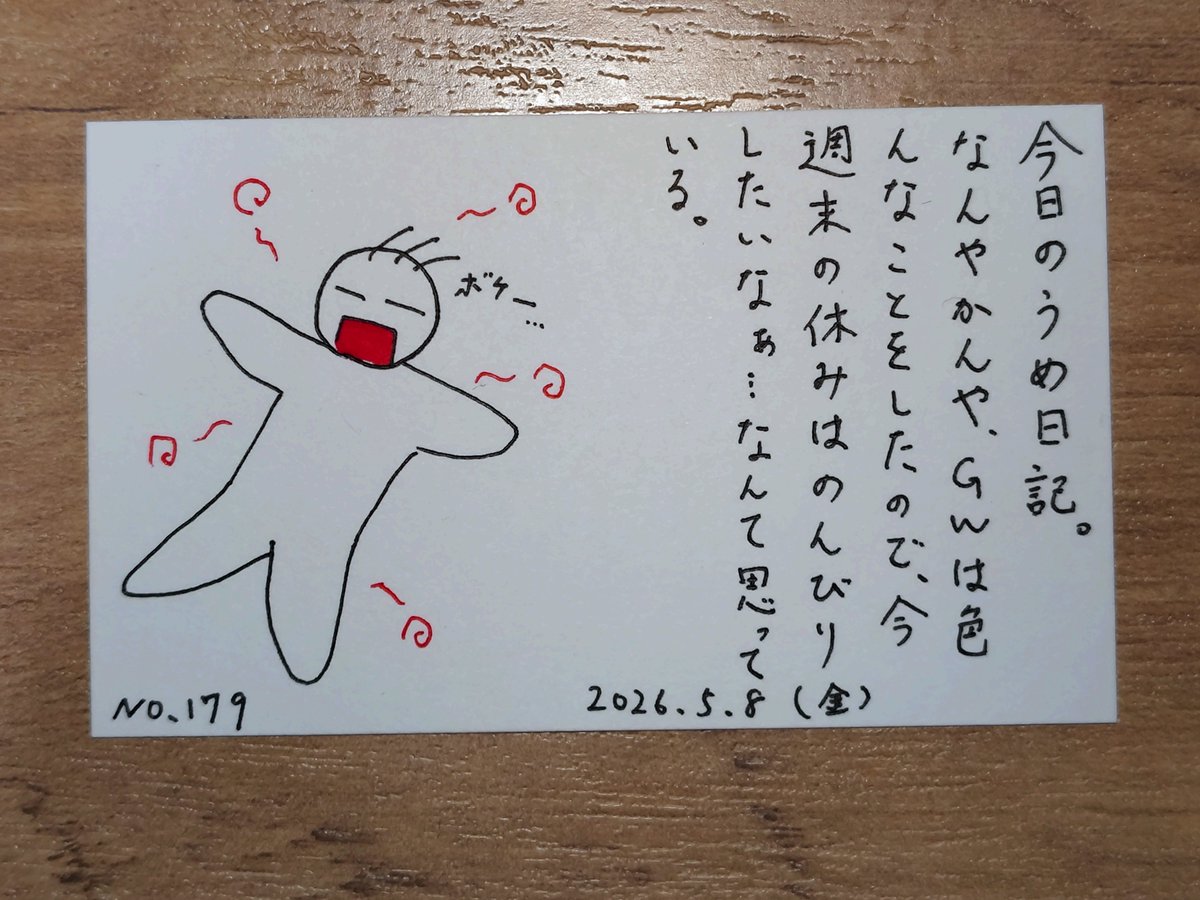 今日のうめ日記。
なんやかんや、GWは色
んなことをしたので、今
週末の休みはのんびり
したいなぁ…なんて思って
いる。
ボケー…
NO.179
2026.5.8(金)